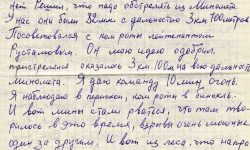 ней Решил, что надо обстрелять из Миномета
У нас они были 82мм с дальностью 3км 100метров
Посоветовался с ком роты лейтенантом
Рустамовым. Он мою идею одобрил.
пристрелял оказалось 3км 100м на всю дальность
миномета. Я даю команду 10 мин огонь.
Я наблюдаю в перископ, ком роты в бинокль.
И вот мины стали рваться, что там тво-
рилось в это время, взрывы очень мощные
один за другим. И вот из леса, что напр